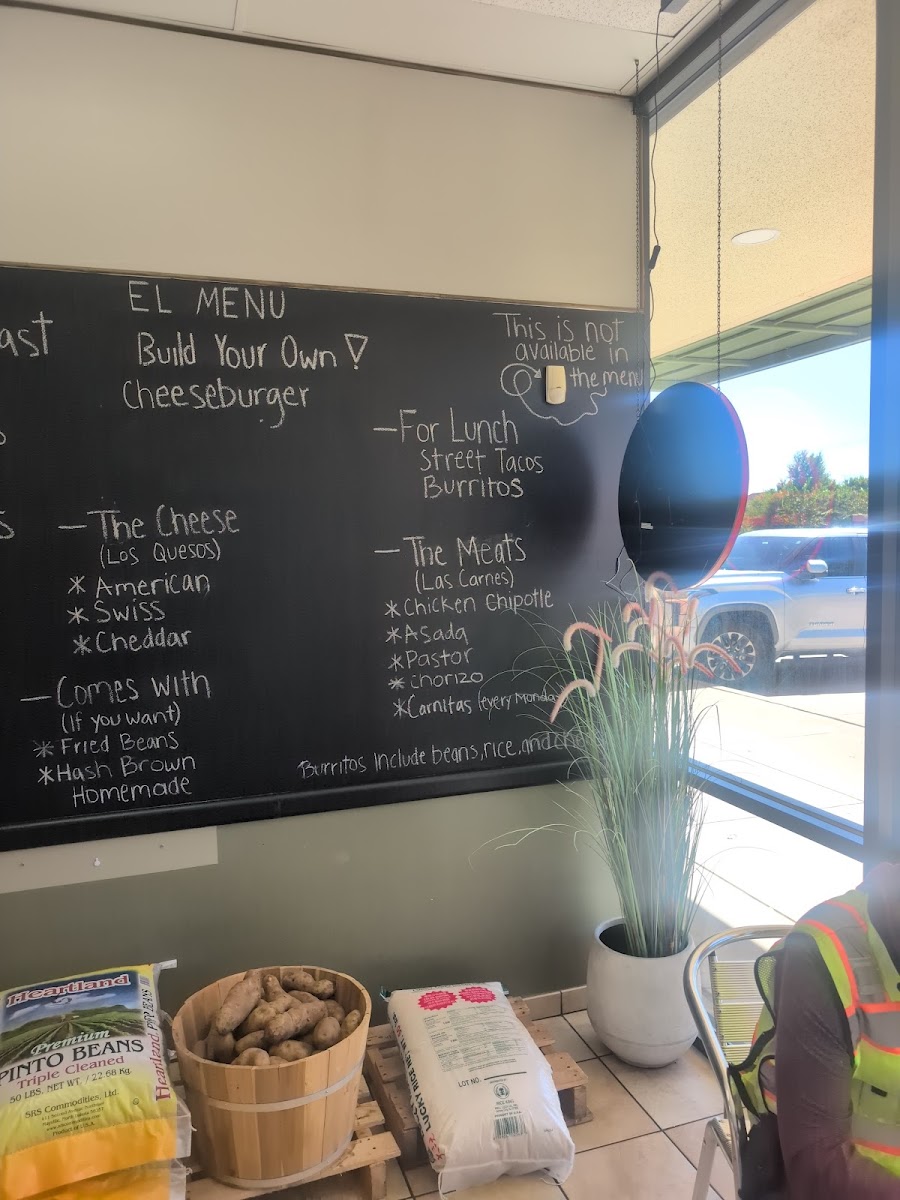 EL MENU
Build Your Own!
Cheeseburger
ast
This is not
available in
the menu
— For Lunch
Street Tacos
Burritos
— The Cheese
(Los Quesos)
* American
* Swiss
* Cheddar
— The Meats
(Las Carnes)
* Chicken Chipotle
* Asada
* Pastor
* Chorizo
* Carnitas (every Monday
— Comes with
(If you want)
* Fried Beans
* Hash Brown
Homemade
Burritos Include beans, rice, and che
Heartland
Premium
PINTO BEANS
Triple Cleaned
50 LBS. NET WT. / 22.68 Kg.
SRS Commodities, Ltd.
Heartland PINTO BEANS
LOT NO.